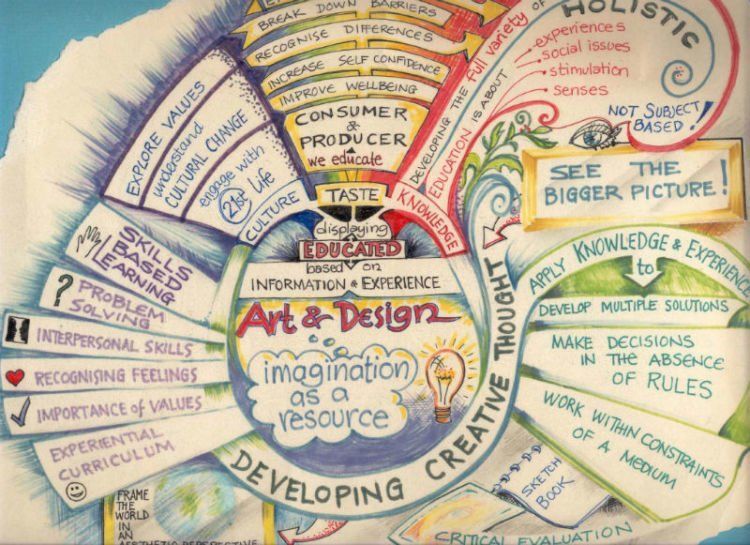 BREAK DOWN BARRIERS
RECOGNISE DIFFERENCES
INCREASE SELF CONFIDENCE
IMPROVE WELLBEING
CONSUMER
&
PRODUCER
we educate
TASTE
EXPLORE VALUES
understand
CULTURAL CHANGE
engage with
21st Life
CULTURE
DEVELOPING THE full variety OF
EDUCATION IS ABOUT
KNOWLEDGE
HOLISTIC
experiences
social issues
stimulation
senses
NOT SUBJECT
BASED!
SEE THE
BIGGER PICTURE!
displaying
EDUCATED
based on
INFORMATION & EXPERIENCE
Art & Design
imagination
as a
resource
DEVELOPING CREATIVE THOUGHT
SKILLS
BASED
LEARNING
? PROBLEM
SOLVING
INTERPERSONAL SKILLS
RECOGNISING FEELINGS
IMPORTANCE of VALUES
EXPERIENTIAL
CURRICULUM
APPLY KNOWLEDGE & EXPERIENCE
to
DEVELOP MULTIPLE SOLUTIONS
MAKE DECISIONS
IN THE ABSENCE
OF RULES
WORK WITHIN CONSTRAINTS
OF A MEDIUM
SKETCH
BOOK
CRITICAL EVALUATION
FRAME
THE
WORLD
IN
AN
AESTHETIC PERSPECTIVE